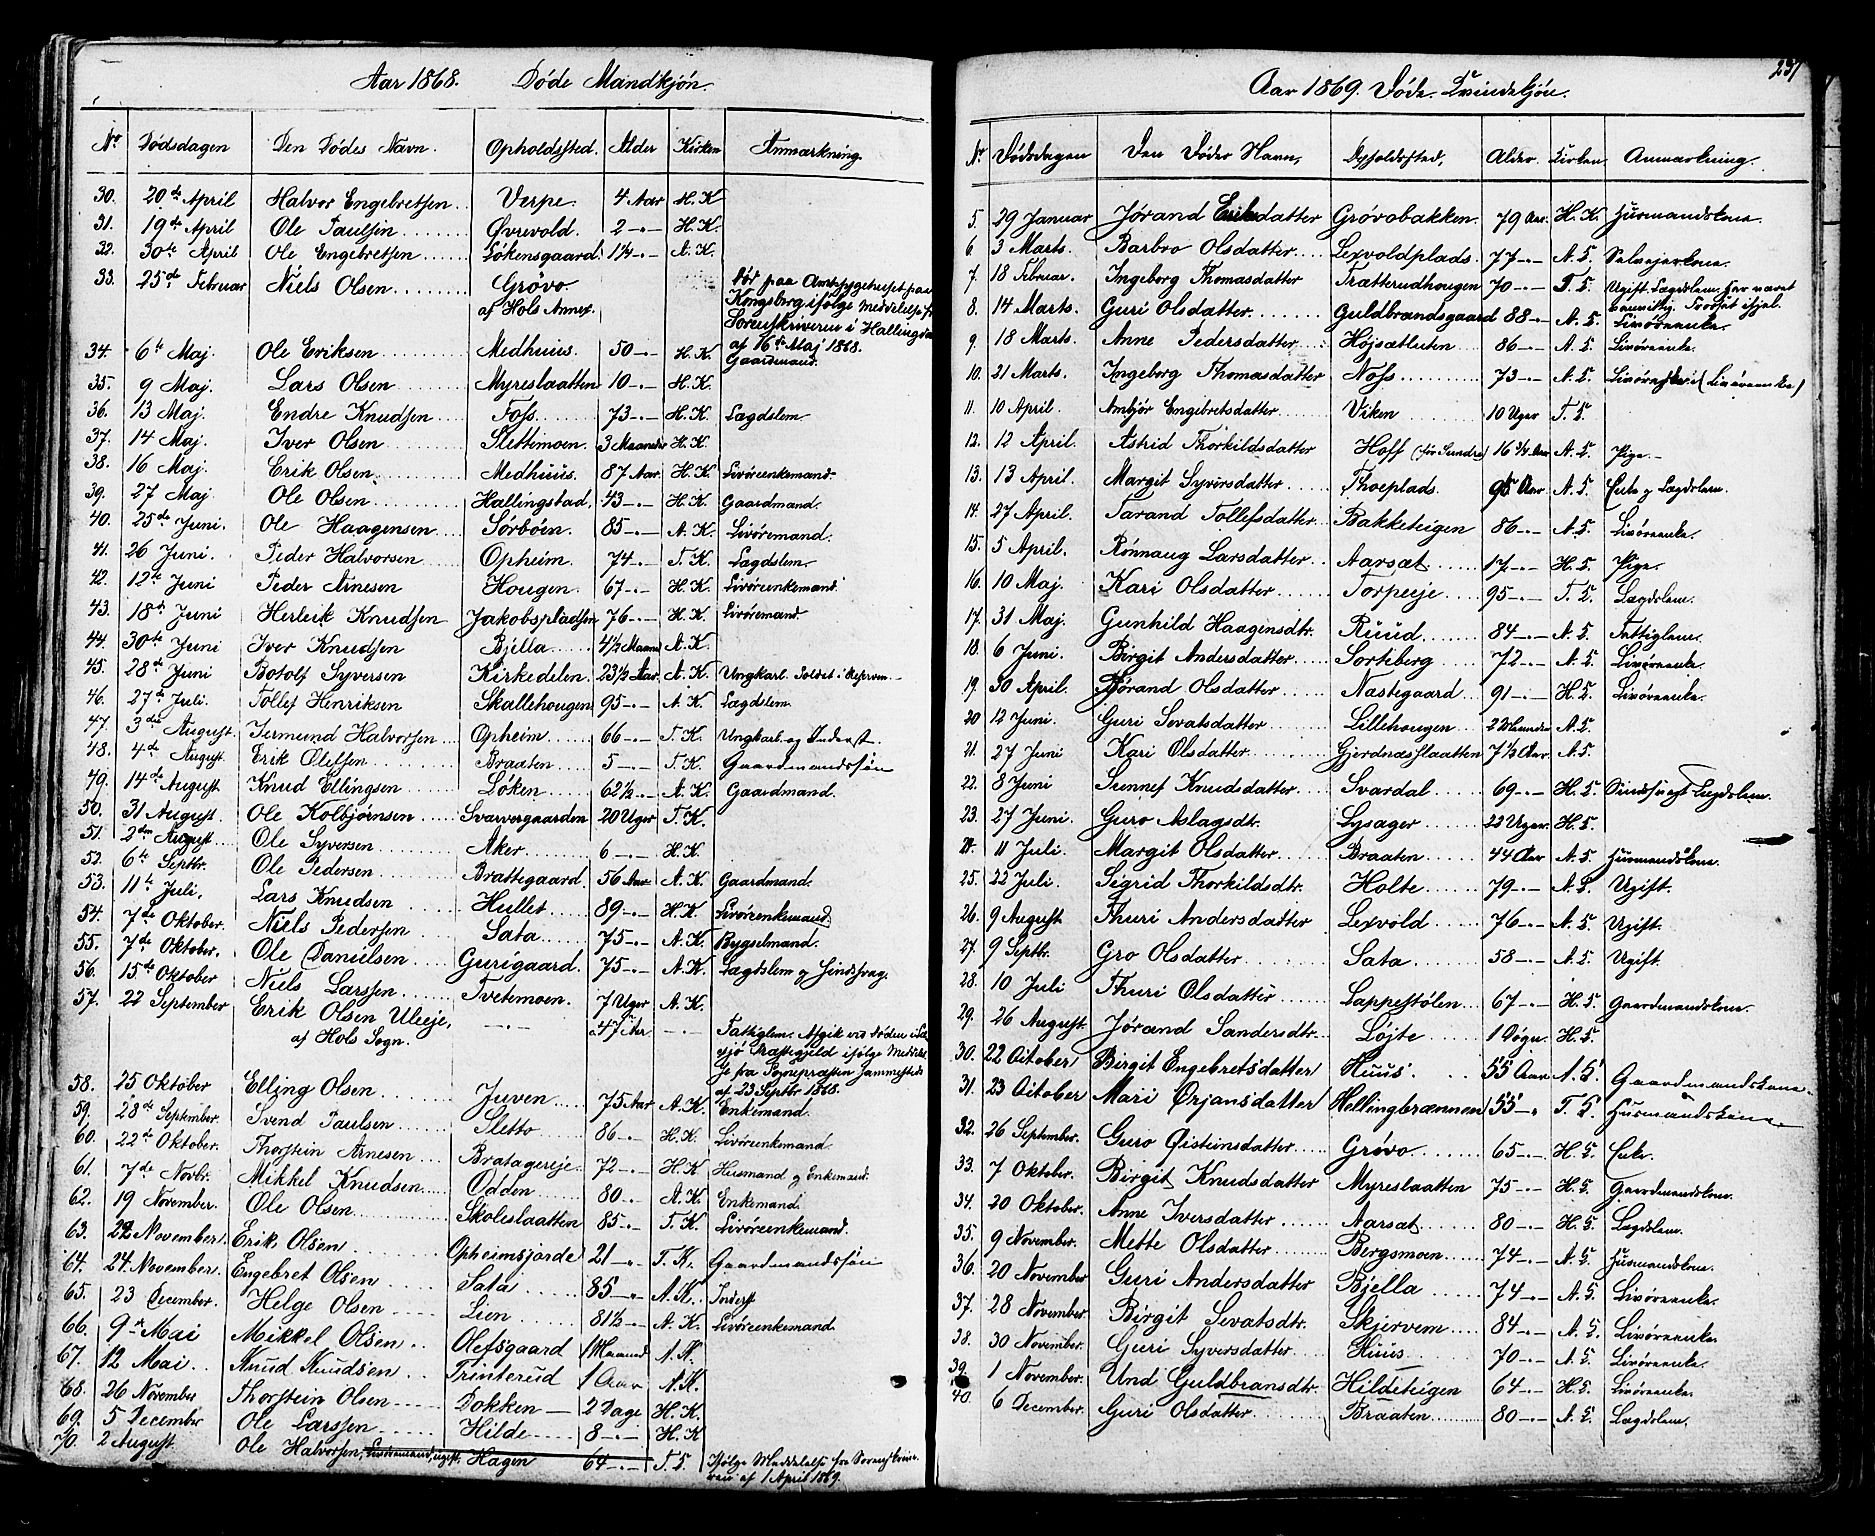 Aar 1868. Døde Mandkjøn.
No Dødsdagen Den Dødes Navn. Opholdssted. Alder Kirken Anmærkning.
30. 20de April Halvor Engebretsen Verpe 4 Aar H. K
31. 19de April Ole Paulsen Øvrevold. 2 -.- H. K.
32. 30te April Ole Engebretsen Løkensgaard 1¼ -.- A. K.
33. 25de Februar Niels Olsen Grøvo
af Hols Annex.
Dør paa Amtssygehuset paa
Kongsberg ifølge Meddelelse fr
Sorenskriveren i Hallingdal
af 16de Maj 1868.
34. 6te Maj Ole Eriksen Medhuus. 50 -.- H. K. Gaardmand.
35. 9 Maj. Lars Olsen Myreslaatten 10 -.- H. K.
36. 13 Maj. Endre Knudsen Foss. 73 -.- H. K. Lægdslem.
37. 14 Maj. Iver Olsen Slettemoen. 3 Maaneder H. K.
38. 16 Maj. Erik Olsen Medhuus. 87 Aar H. K. Livørenkemand.
39. 27 Maj Ole Olsen Hallingstad. 43 -.- H. K. Gaardmand.
40. 25de Juni. Ole Haagensen Sørbøen. 85 -.- A. K. Livøremand.
41. 26 Juni. Peder Halvorsen Opheim. 74 -.- T. K. Lægdslem.
42. 12te Juni Peder Arnesen Hougen. 67 -.- H. K. Livørenkemand
43. 18de Juni Herleik Knudsen Jakobspladsen 76 -.- H. K. Livøremand.
44. 30te Juni Iver Knudsen Bjella 4½ Maaned A. K.
45. 28de Juni Botolf Syversen Kirkedelen 23½ Aar. A. K. Ungkarl. Soldat i
46. 27de Juli. Tollef Henriksen Skallehougen 95 -.- A. K. Lægdslem.
47. 3die August. Germund Halvorsen Opheim 66 -.- T. K. Ungkarl og Inderst.
48. 4de August Erik Olessen Braaten 5 -.- T. K. Gaardmandssøn
49. 14de August Knud Ellingsen Løken. 62½ -.- A. K. Gaardmand.
50. 31 August. Ole Kolbjørnsen Svarvergaarden 20 Uger T. K.
51. 2den August Ole Syversen Aker 6 -.- H. K.
52. 6te Septbr. Ole Pedersen Brattegaard 56 Aar A. K. Gaardmand.
53. 11te Juli. Lars Knudsen Hullet 89 -.- H. K. Livørenkemand
54. 7de Oktober. Niels Pedersen Sata 75 -.- A. K. Bygselmand.
55. 7de Oktober. Ole Danielsen Gurigaard. 75 -.- A. K. Lægdslem og Sindssvag.
56. 15de Oktober Niels Larssen Tvetemoen. 7 Uger A. K.
57. 22 September Erik Olsen Uleeje, -.- 47 Aar -.- Fattiglem. Afgik ved Døden i
af Hols Sogn.
sjø Præstegjeld ifølge Meddelel
se fra Sognepræsten sammesteds
af 23 Septbr 1868.
58. 25 Oktober Elling Olsen Juven 75 Aar A. K. Enkemand.
59. 28de September. Svend Paulsen Sletto 86 -.- H. K. Livørenkemand.
60. 22de Oktober. Thorstein Arnesen Bratagereje. 72 -.- H. K Husmand og Enkemand.
61. 7de Novbr. Mikkel Knudsen Odden 80 -.- A. K. Enkemand.
62. 19 November. Ole Olsen Skoleslaatten 85 -.- T. K. Livørenkemand.
63. 22 November. Erik Olsen Opheimsjorde 21 -.- T. K. Gaardmandssøn
64. 24 November. Engebret Olsen Sata 85 -.- A. K. Inderst
65. 23 December. Helge Olsen Lien 81½ -.- A. K. Livørenkemand.
66. 9de Mai Mikkel Olsen Olefsgaard 1 Maaned A. K.
67. 12 Mai Knud Knudsen Trinterud 1 Aar A. K.
68. 26 November Thorstein Olsen Dokken 2 Dage H. K.
69. 5 December Ole Larssen Hilde 8 -.- H. K
70. 2 August Ole Halvorsen, ugift. Hagen 64 -.- T. K. Ifølge Meddelelse fra Sorenskrive-
ren af 1 April 1869.
237
Aar 1869. Døde Kvindekjøn.
Nr. Dødsdagen Den Dødes Navn, Opholdssted, Alder. Kirken Anmærkning.
5. 29 Januar Jørand Eriksdatter Grøvobakken. 79 Aar. H. K. Husmandskone.
6. 3 Marts. Barbro Olsdatter Lexvoldplads. 77 -.- A. K. Selvejerkone.
7. 18 Februar. Ingeborg Thomasdatter Trætterudhougen 70 -.- T. K Ugift Lægdslem. Har været
vanvittig. Frosset ihjel.
8. 14 Marts. Guri Olsdatter Guldbrandsgaard 88 -.- A. K. Livørenke.
9. 18 Marts. Anne Pedersdatter Højsætluten 86 -.- A. K. Livørenke.
10. 21 Marts. Ingeborg Thomasdatter Noss 73 -.- A. K. (Livørenke)
11. 10 April. Ambjør Engebretsdatter Viken 10 Uger T. K
12. 12 April. Astrid Thorkildsdatter Hoff (før Sundre) 16 ¾ Aar A. K. Pige.
13. 13 April. Margit Syversdatter Thoeplads. 95 Aar A. K. Enke og Lægdslem.
14. 27 April. Tarand Tollefsdatter Bakketeigen 86 -.- A. K. Livørenke.
15. 5 April. Rønnaug Larsdatter Aarsæt 17 -.- H. K. Pige.
16. 10 Maj. Kari Olsdatter Torpeeje. 95 -.- T. K. Lægdslem.
17. 31 Maj. Gunhild Haagensdtr. Ruud 84 -.- A. K. Fattiglem.
18. 6 Juni. Birgit Andersdatter Sorteberg 72 -.- A. K. Livørenke.
19. 30 April. Jørand Olsdatter Nastegaard 91 -.- H. K. Livørenke.
20 12 Juni. Guri Sevatsdatter Lillehougen 2 Maaneder A. K.
21. 27 Juni Kari Olsdatter Gjerdnæsslaatten 7½ Aar A. K.
22. 8 Juni Sunnef Knudsdatter Svardal 69 -.- H. K. Sindssvagt Lægdslem.
23. 27 Juni. Guro Aslagsdtr. Lysager 22 Uger. H. K.
24. 11 Juli. Margit Olsdatter Braaten 44 Aar A. K. Husmandskone.
25. 22 Juli. Sigrid Thorkildsdtr. Holte 79 -.- A. K. Ugift.
26. 9 August Thuri Andersdatter Lexvold 76 -.- A. K. Ugift.
27. 9 Septbr. Gro Olsdatter Sata 58 -.- A. K. Ugift.
28. 10 Juli Thuri Olsdatter Lappestølen 67 -.- H. K Gaardmandskone.
29. 26 August. Jørand Sandersdtr. Løjte 1 Døgn H. K.
30. 22 October Birgit Engebretsdatter Huus. 55 Aar A. K. Gaardmandskone.
31. 23 October Mari Ørjansdatter Hellingbrænnen 55 -.- T. K. Husmandskone
32. 26 September. Guro Øistensdatter Grøvo 65 -.- H. K. Enke.
33. 7 Oktober. Birgit Knudsdatter Myreslaatten 75 -.- H. K. Gaardmandskone.
34. 20 Oktober. Anne Iversdatter Aarsæt 80 -.- H. K. Lægdslem.
35. 9 November. Mette Olsdatter Bergsmoen 74 -.- A. K. Husmandskone.
36. 20 November Guri Andersdatter Bjella 74 -.- A. K. Livørenke.
37. 28 November. Birgit Sevatsdtr. Skjervem 84 -.- A. K. Livørenke.
38. 30 November. Guri Syversdatter Huus 70 -.- A. K. Livørenke.
39 1 November. Und Guldbransdtr. Hildeteigen 64 -.- H. K. Livørenke.
40. 6 December. Guri Olsdatter Braaten 80 -.- A. K. Lægdslem.